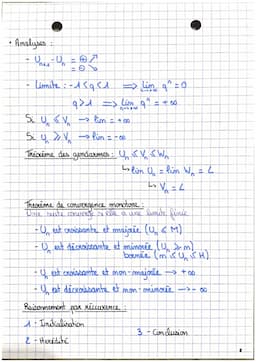 • Analyses :
- Uₙ₊₁ - Uₙ = ⊕ ↗
= ⊖ ↘
- Limite : -1 < q < 1 ⟹ lim qⁿ = 0
n→+∞
q > 1 ⟹ lim qⁿ = +∞
n→+∞
Si Uₙ ⩽ Vₙ → lim = +∞
Si Uₙ ⩾ Vₙ → lim = -∞
Théorème des gendarmes : Uₙ ⩽ Vₙ ⩽ Wₙ
↳ lim Uₙ = lim Wₙ = L
↳ Vₙ = L
Théorème de convergence monotone :
Une suite converge si elle a une limite finie
- Uₙ est croissante et majorée (Uₙ ⩽ M)
- Uₙ est décroissante et minorée (Uₙ ⩾ m)
bornée (m ⩽ Uₙ ⩽ M)
- Uₙ est croissante et non-majorée → +∞
- Uₙ est décroissante et non-minorée → -∞
Raisonnement par récurrence :
1 - Initialisation
2 - Hérédité
3 - Conclusion